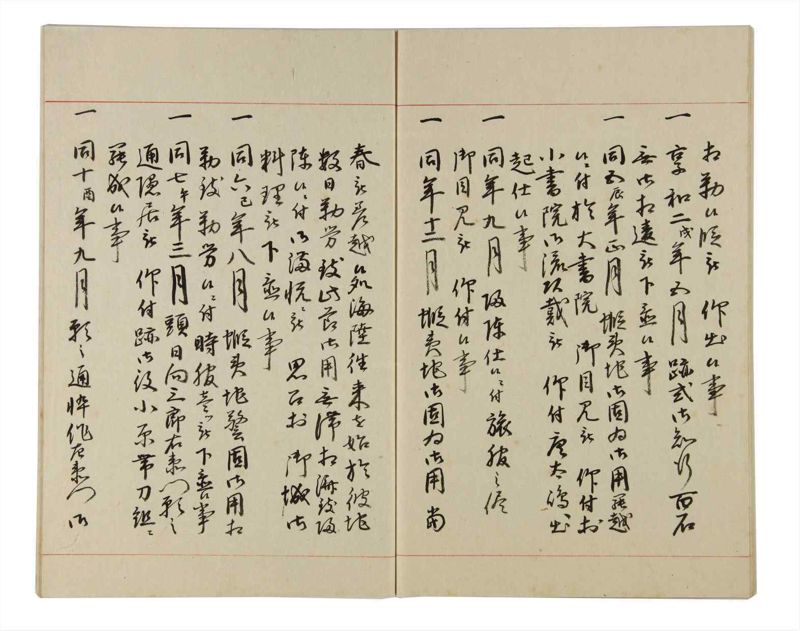 相勤候段被 仰出候事
一 享和二戌年五月跡式御知行百石
無御相違被下置候事
一 同五辰年正月蝦夷地御固為御用罷越
候ニ付於大書院 御目見被 仰付於
小書院御流頂戴被 仰付唐太嶋出
起仕候事
一 同年九月帰陳仕候ニ付旅服之侭
御目見被 仰付候事
一 同年十二月蝦夷地御固為御用尚
春被差越候処海陸往来を始於彼地
数日勤労致此節御用無滞相済致帰
陳候ニ付御満悦被 思召於 御城御
料理被下置候事
一 同六巳年八月蝦夷地警固御用相
勤致勤労候ニ付時服壱被下置候事
一 同七午年三月頭日向三郎右衛門願之
通隠居被 仰付跡御役小原帯刀組ニ
罷成候事
一 同十酉年九月願之通悴作左衛門御